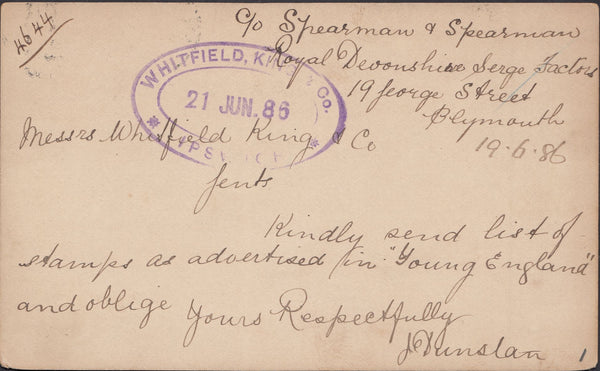 4644
c/o Spearman & Spearman
Royal Devonshire Serge Factors
19 George Street
Plymouth
19.6.86
WHITFIELD, KING & Co.
21 JUN. 86
* IPSWICH *
Messrs Whitfield King & Co
Gents
Kindly send list of
stamps as advertised in "Young England"
and oblige Yours Respectfully
J Dunstan
1